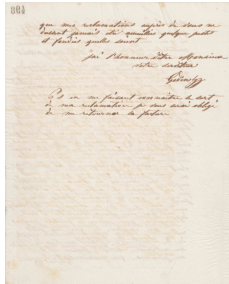 384
que mes reclamations auprès de vous ne
fussent jamais été quelque juste
et fondées qu'elles soient
j'ai l'honneur d'être Monsieur
votre serviteur
P.S en me faisant connaitre le sort
de ma reclamation je vous serai obligé
de me retourner la facture